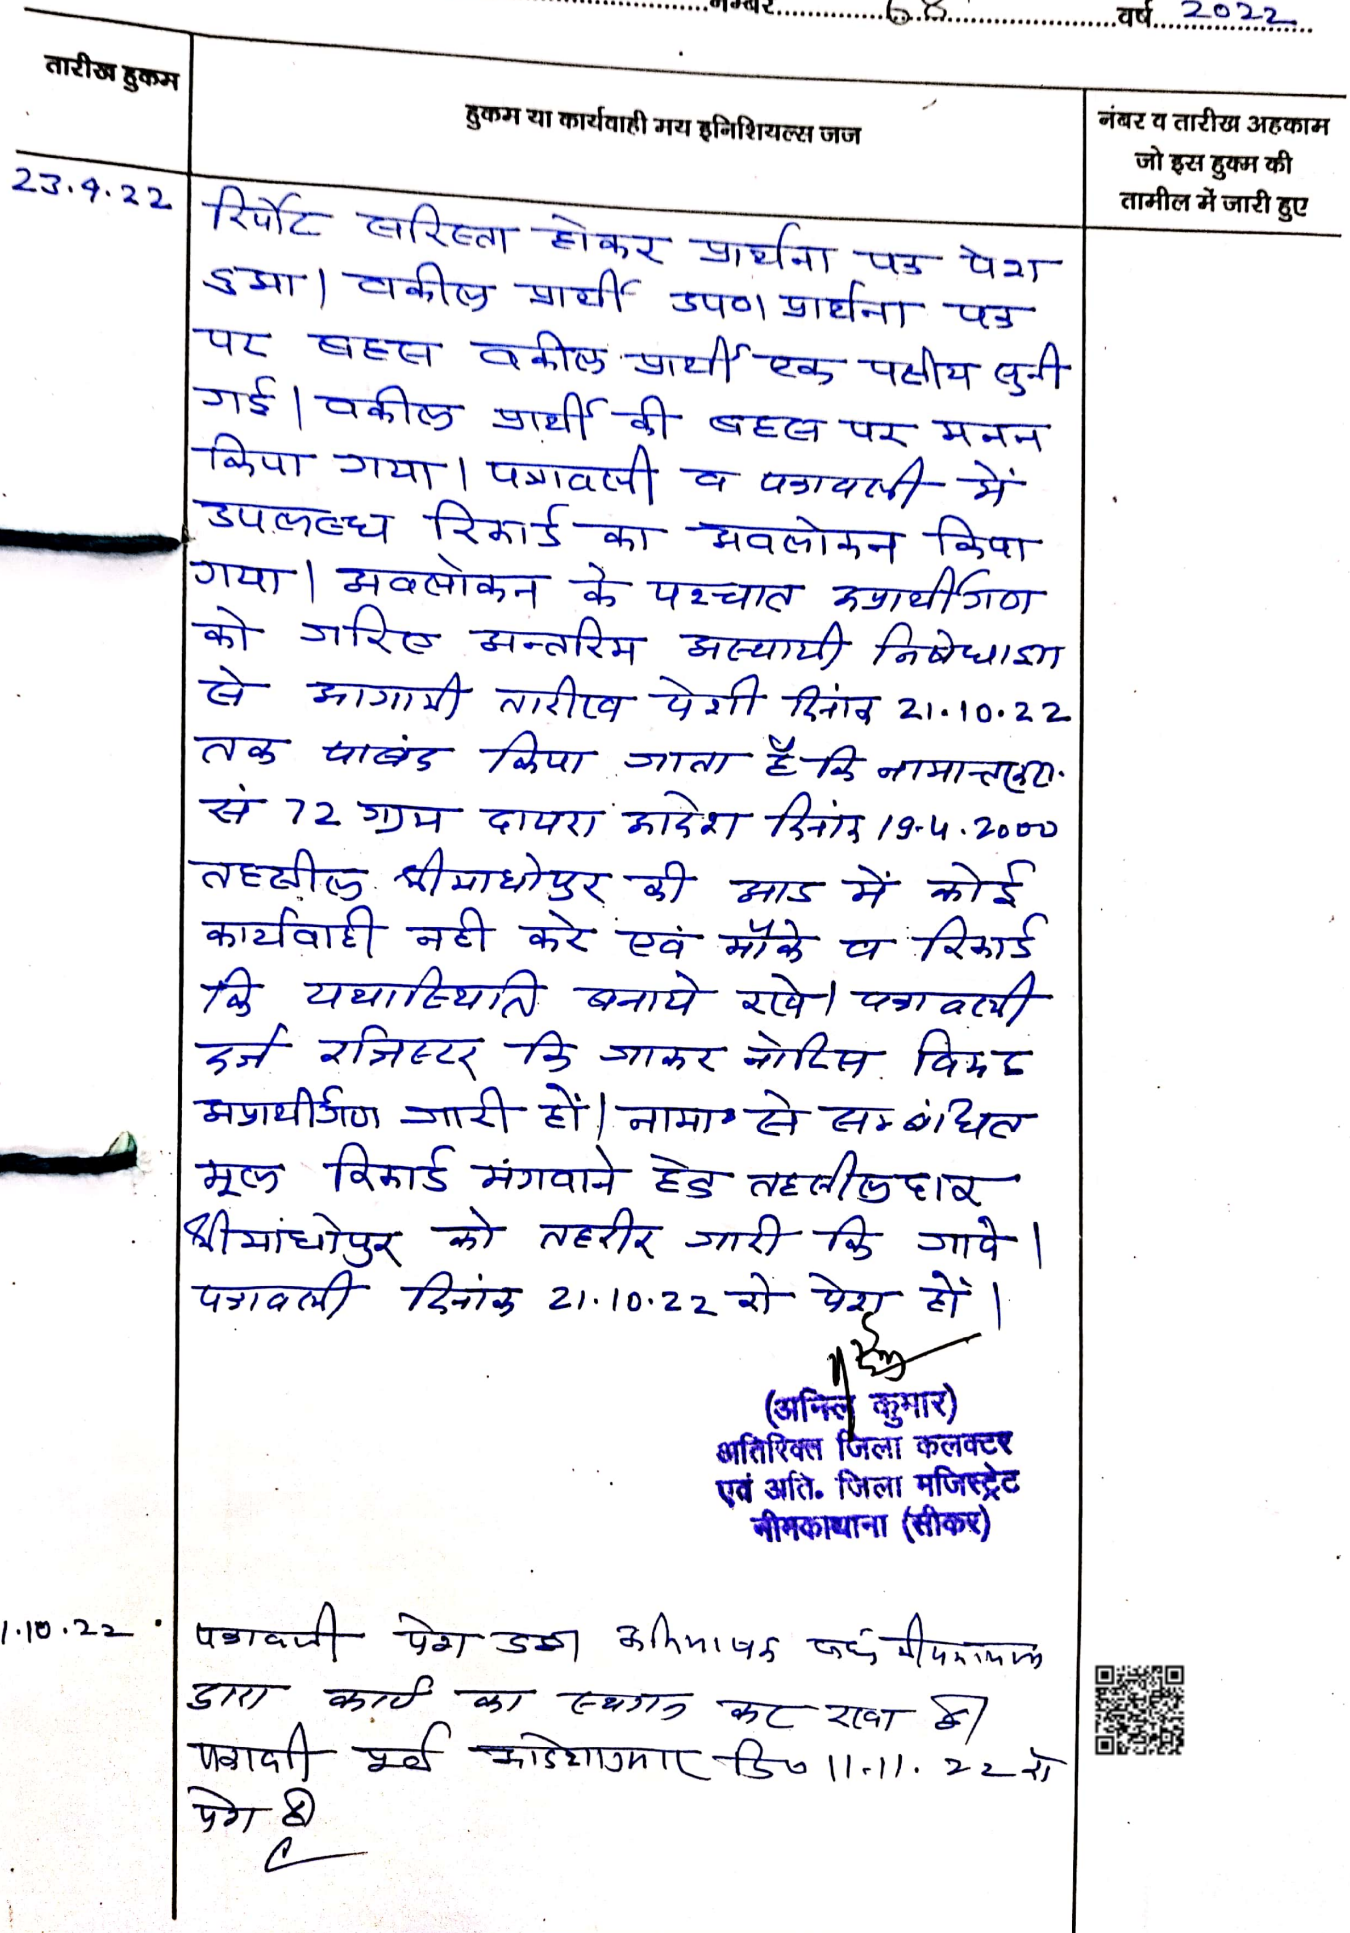 नम्बर 68 वर्ष 2022
तारीख हुकम
हुकम या कार्यवाही मय इनिशियल्स जज
नंबर व तारीख अहकाम
जो इस हुक्म की
तामील में जारी हुए
23.9.22
रिर्पोट सरिस्ता होकर प्रार्थना पत्र पेश
हुआ। वकील प्रार्थी उप0। प्रार्थना पत्र
पर बहस वकील प्रार्थी एक पक्षीय सुनी
गई। वकील प्रार्थी की बहस पर मनन
किया गया। पत्रावली व पत्रावली में
उपलब्ध रिकार्ड का अवलोकन किया
गया। अवलोकन के पश्चात अप्रार्थीगण
को जरिए अन्तरिम अस्थायी निषेधाज्ञा
से आगामी तारीख पेशी दिनांक 21.10.22
तक पाबंद किया जाता है कि नामान्तकरण
सं 72 ग्राम दायरा आदेश दिनांक 19.4.2000
तहसील श्रीमाधोपुर की आड में कोई
कार्यवाही नही करे एवं मौके व रिकार्ड
कि यथास्थिति बनाये रखे। पत्रावली
दर्ज रजिस्टर कि जाकर नोटिस विरूद्ध
अप्रार्थीगण जारी हों। नामा॰ से सम्बंधित
मूल रिकार्ड मंगवाने हेतु तहसीलदार
श्रीमांधोपुर को तहरीर जारी कि जावे।
पत्रावली दिनांक 21.10.22 को पेश हों।
(अनिल कुमार)
अतिरिक्त जिला कलक्टर
एवं अति. जिला मजिस्ट्रेट
नीमकाथाना (सीकर)
1.10.22
पत्रावली पेश हुई। अभिभाषक
द्वारा कार्य का स्थगन कर रखा है।
पत्रावली पूर्व आदेशानुसार दि0 11.11.22 को
पेश हो